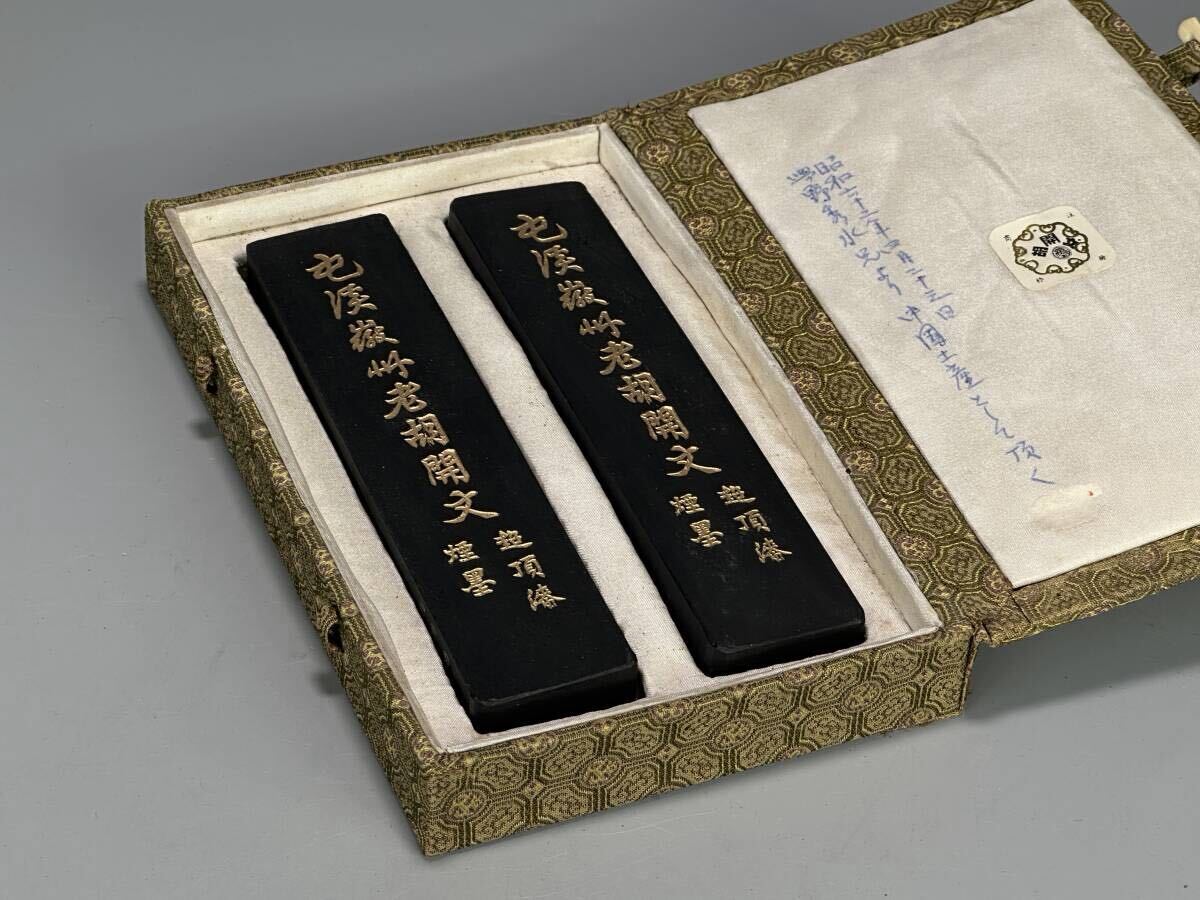 屯溪徽州老胡開文
超頂漆
煙墨
屯溪徽州老胡開文
超頂漆
煙墨
昭和六十三年四月二十三日
野秀水兄より 中国土産として頂く
胡開文